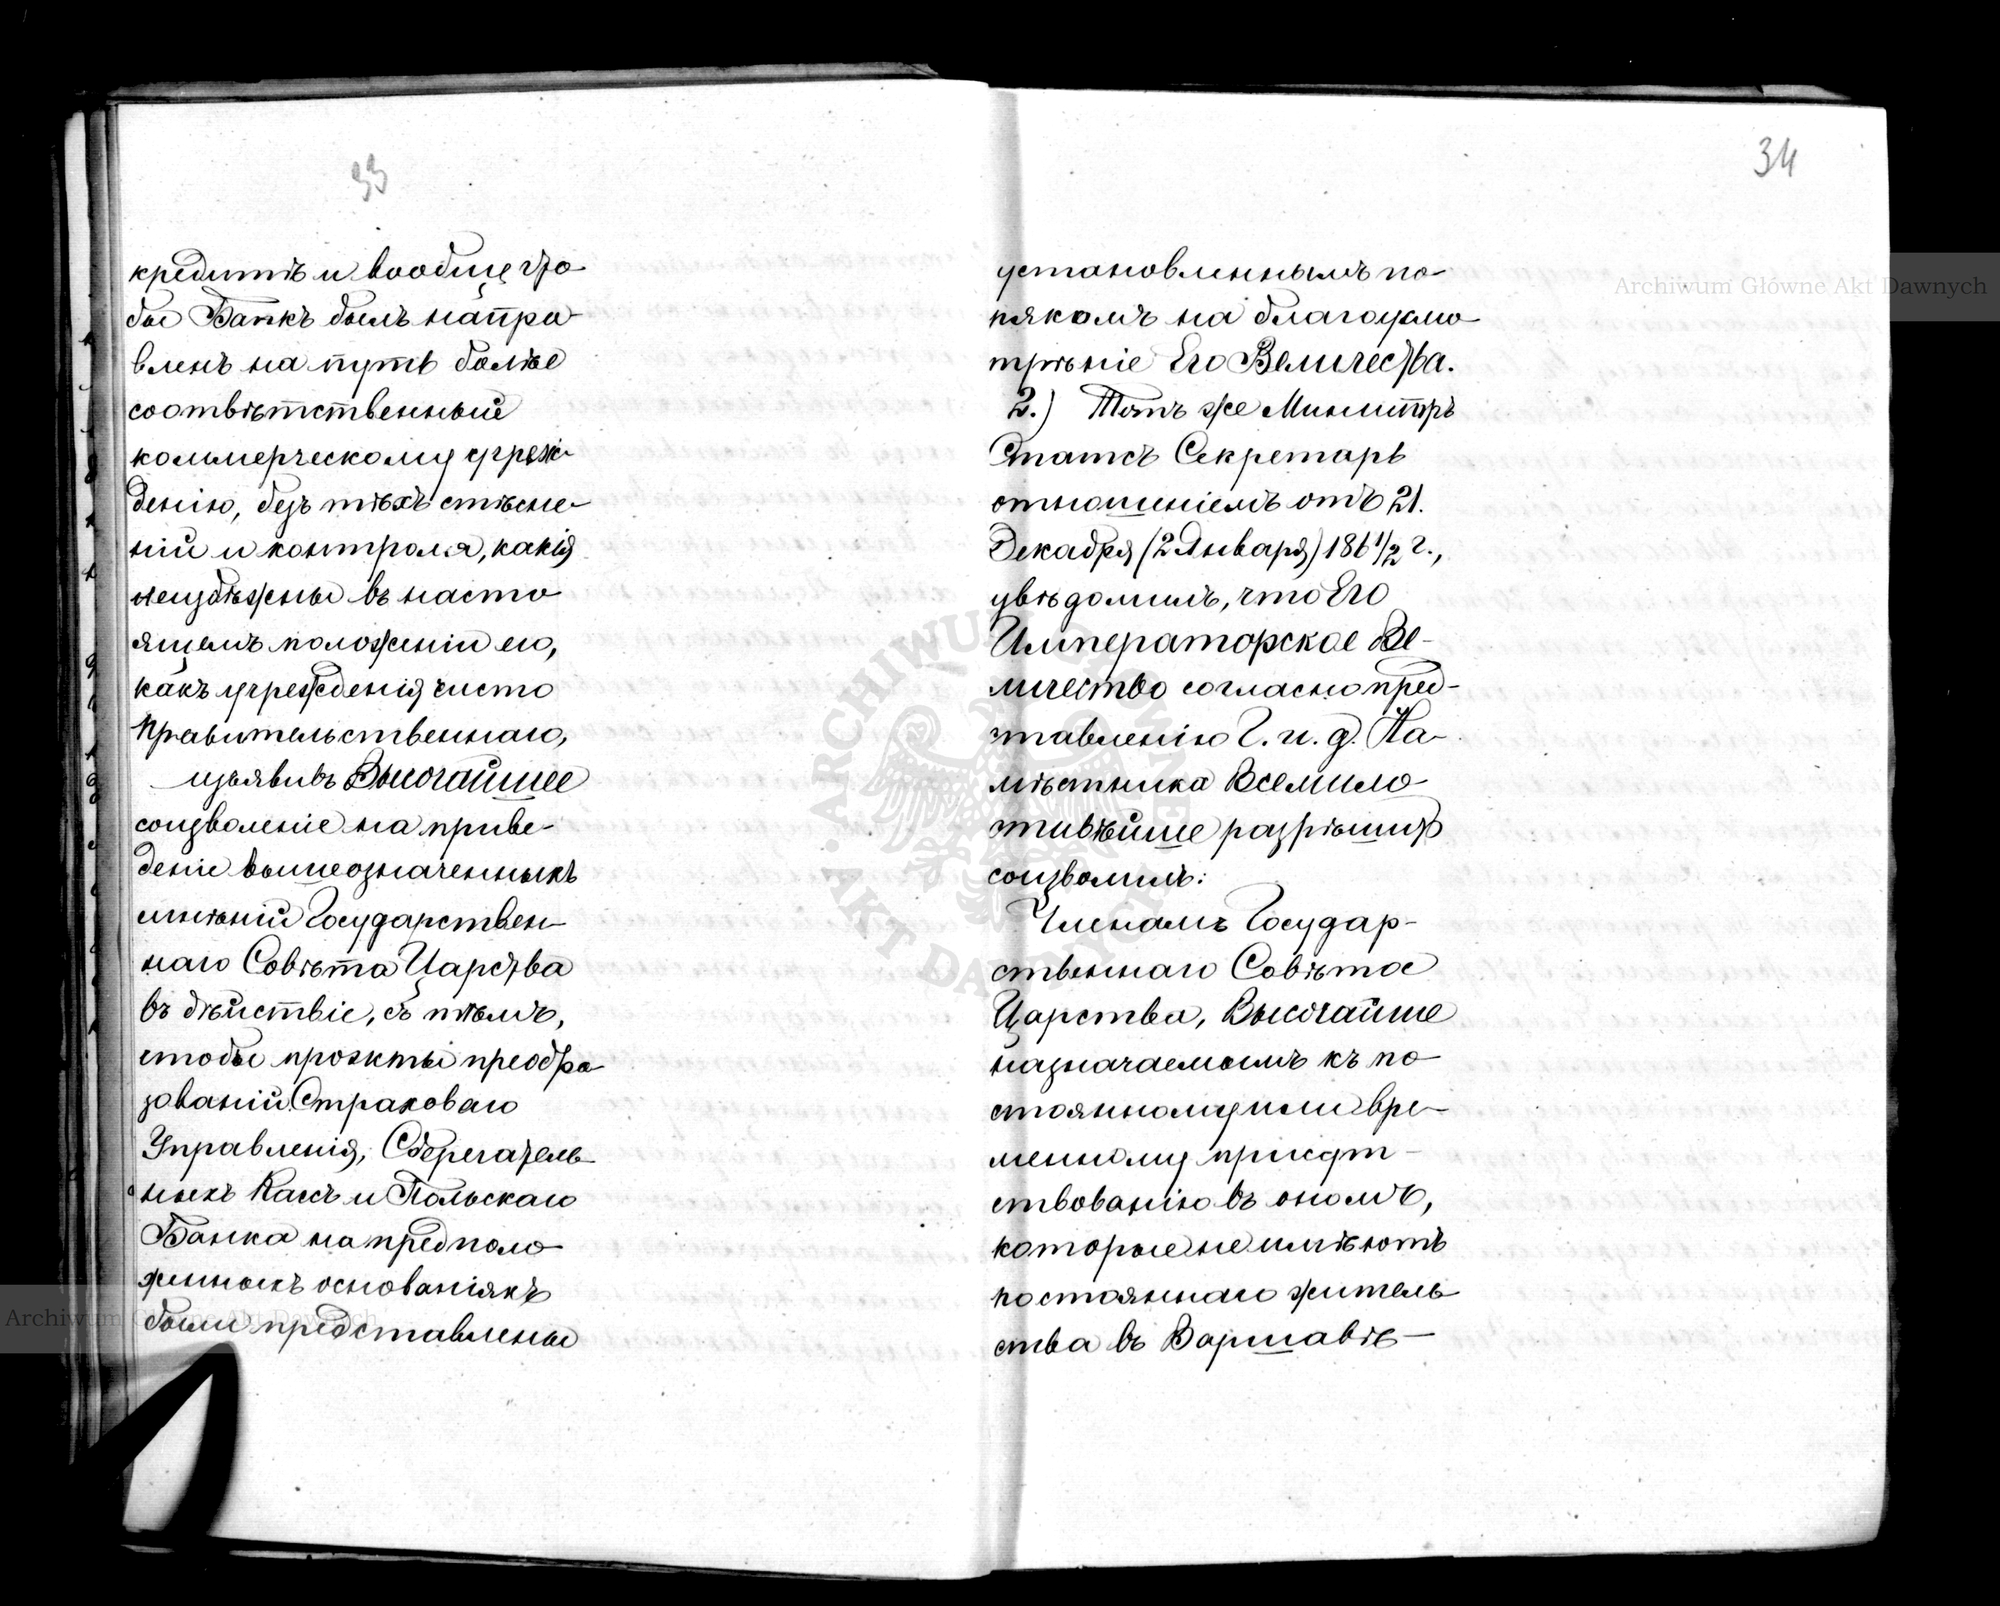 33
кредитъ и вообще что
бы Банкъ былъ напра
вленъ на путь болѣе
соотвѣтственный
коммерческому учреж-
денію, безъ тѣхъ стѣсне-
ній и контроля, какія
неизбѣжны въ насто
ящемъ положеніи его,
какъ учрежденія чисто
Правительственнаго,
изъявивъ Высочайшее
соизволеніе на приве-
деніе вышеозначенныхъ
мнѣній Государствен-
наго Совѣта Царства
въ дѣйствіе, съ тѣмъ,
чтобы проэкты преобра
зованій Страховаго
Управленія, Сберегатель
ныхъ Кассъ и Польскаго
Банка на предполо
женныхъ основаніяхъ
были представлены
34
установленнымъ по-
рядкомъ на благоусмо
трѣніе Его Величества.
2.) Тотъ же Министръ
Статсъ Секретарь
отношеніемъ отъ 21.
Декабря (2 Января) 186 1/2 г.,
увѣдомилъ, что Его
Императорское Ве-
личество согласно пред-
ставленію Г. и. д. На-
мѣстника Всемило
стивѣйше разрѣшить
соизволилъ:
Членамъ Государ-
ственнаго Совѣта
Царства, Высочайше
назначаемымъ къ по
стоянному или вре-
менному присут-
ствованію въ ономъ,
которые не имѣютъ
постояннаго житель
ства въ Варшавѣ —
Archiwum Główne Akt Dawnych
Archiwum Główne Akt Dawnych
ARCHIWUM GŁÓWNE
AKT DAWNYCH